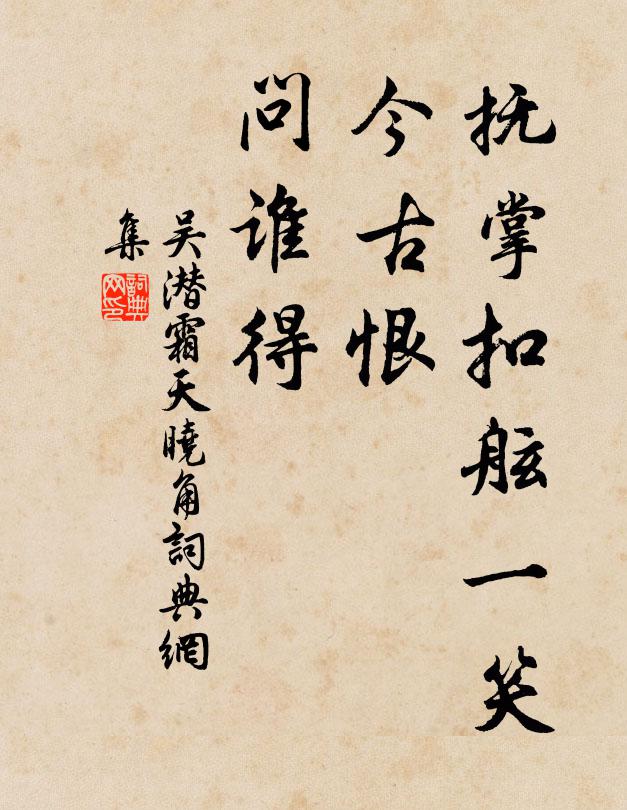 抚掌扣舷一笑
今古恨
问谁得
吴潜霜天曉角詞典網
集
詞典
网印